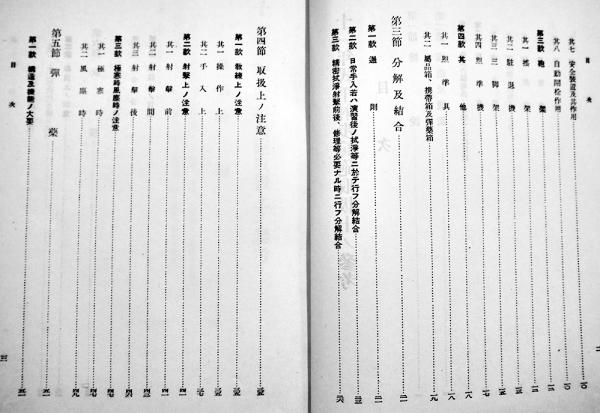 其七 安全裝置及其作用
其八 自動開栓作用 一〇
第三款 砲架
其一 搖架
其二 駐退機
其三 脚架
其四 照準機
第四款 其他
其一 照準具
其二 屬品箱、携帶箱及彈藥箱 一九
第三節 分解及結合 二一
第一款 通則 二一
第二款 日常手入若ハ演習後ノ拭淨等ニ於テ行フ分解結合
第三款 精密拭淨射擊前後、修理等必要ナル時ニ行フ分解結合
第四節 取扱上ノ注意
第一款 敎練上ノ注意
其一 操作上
其二 手入上
第二款 射擊上ノ注意
其一 射擊前
其二 射擊間
其三 射擊後
第三款 極寒時風塵時ノ注意
其一 極寒時
其二 風塵時
第五節 彈藥
第一款 構造及機能ノ大要
目次
三